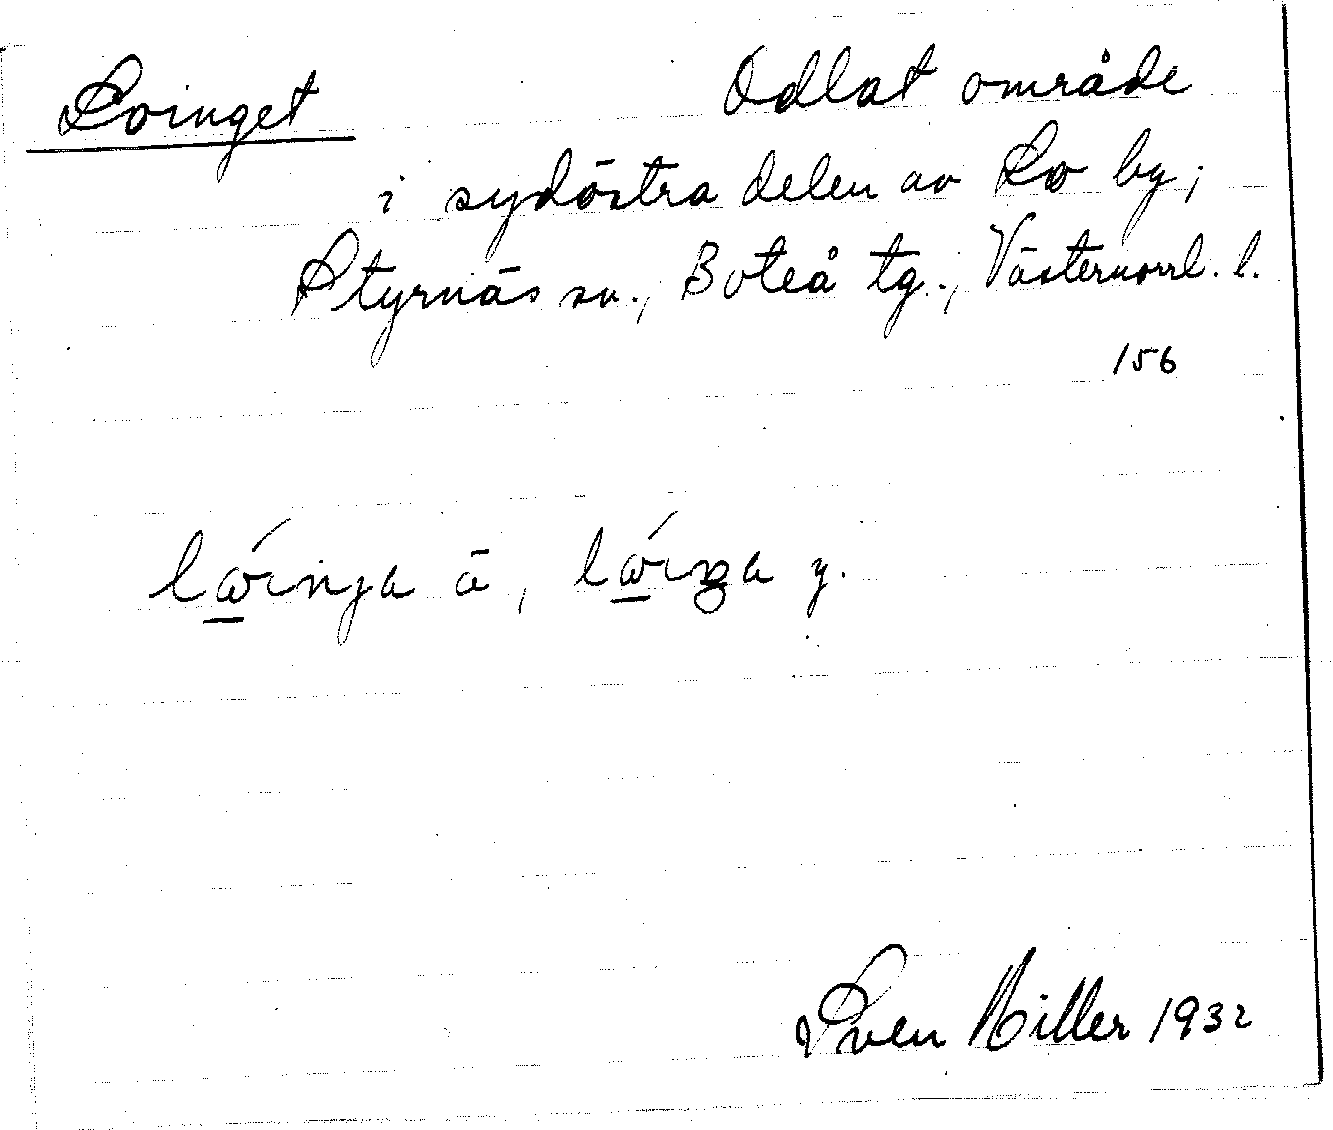 Loinget Odlat område
i sydöstra delen av Lo by,
Styrnäs sn., Boteå tg., Västernorrl. l.
156
lώ̲inja ä, lώ̲iŋa y.
Sven Hiller 1932